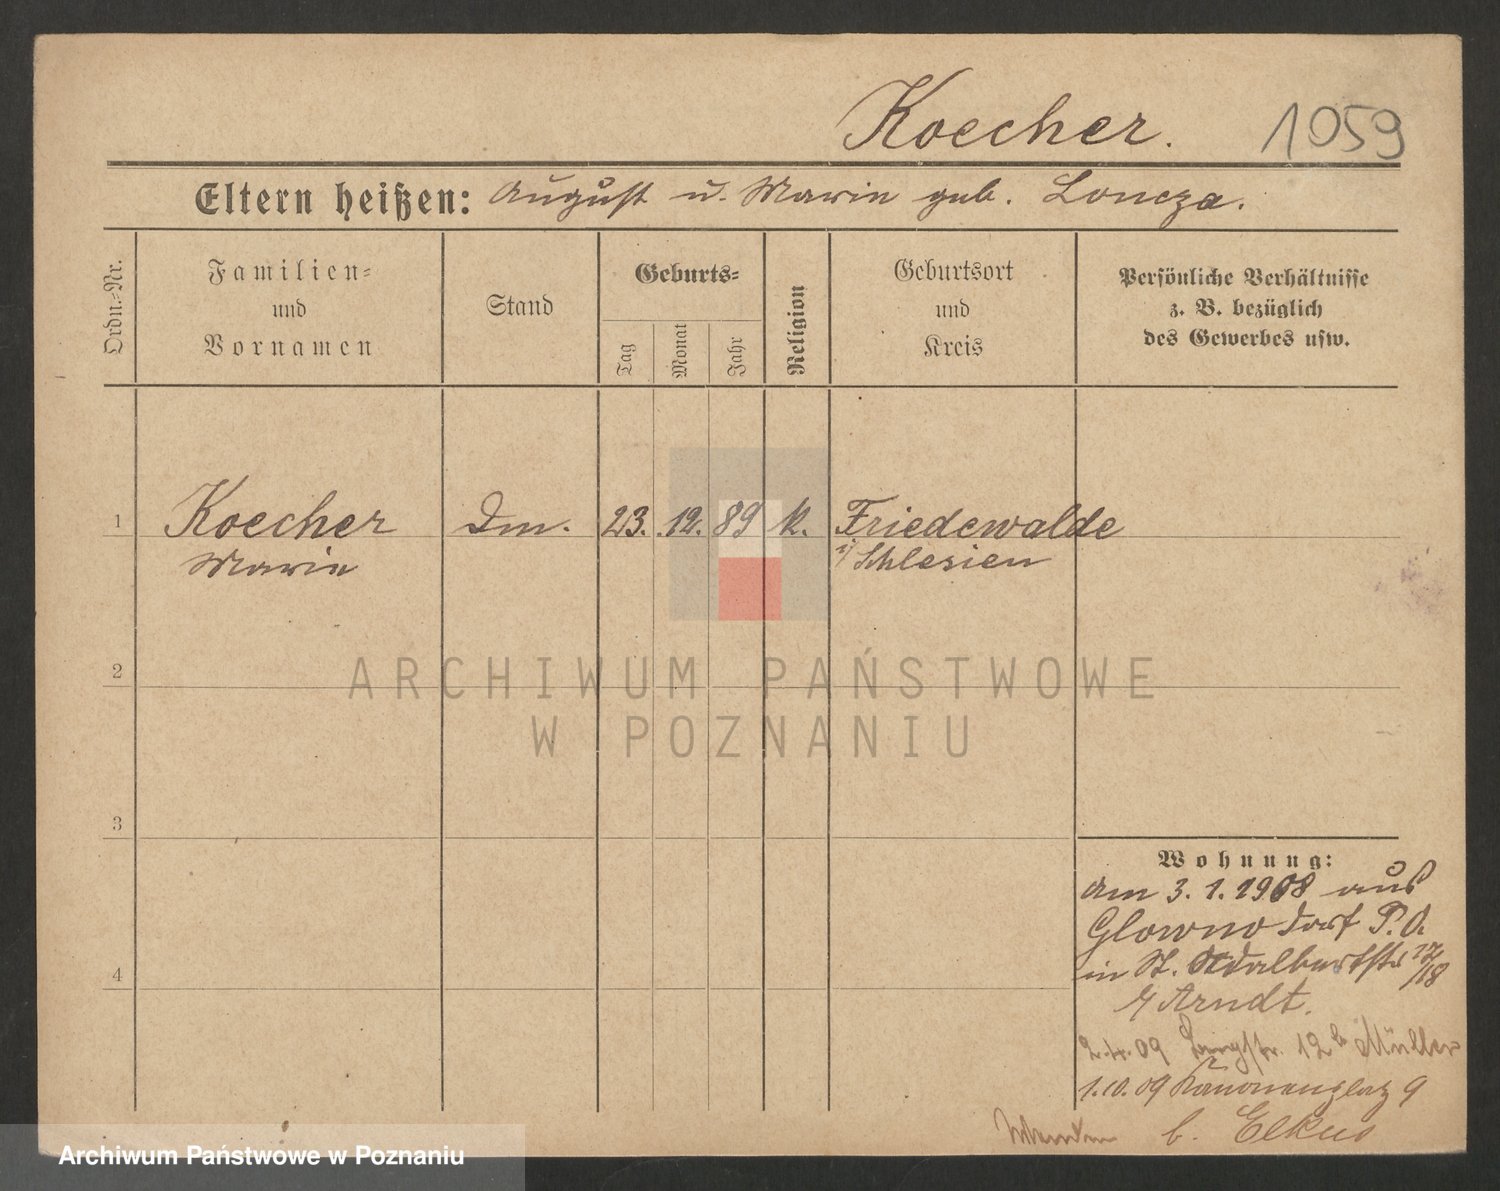 Koecher. 1059
Eltern heißen: August u. Marie geb. Loncza.
Ordn.-Nr.
Familien-
und
Vornamen
Stand
Geburts-
Tag
Monat
Jahr
Religion
Geburtsort
und
Kreis
Persönliche Verhältnisse
z. B. bezüglich
des Gewerbes usw.
1 Koecher Dm. 23. 12. 89 k. Friedewalde
Marie i/ Schlesien
2
ARCHIWUM PAŃSTWOWE
W POZNANIU
3
Wohnung:
am 3. 1. 1908 aus
Glowno Dorf P. O.
in St. Adalbertstr 17/18
b/ Arndt.
2.4.09 Langstr. 12 b Müller
1.10.09 Kanonenplatz 9
b. Elkus
4
Archiwum Państwowe w Poznaniu